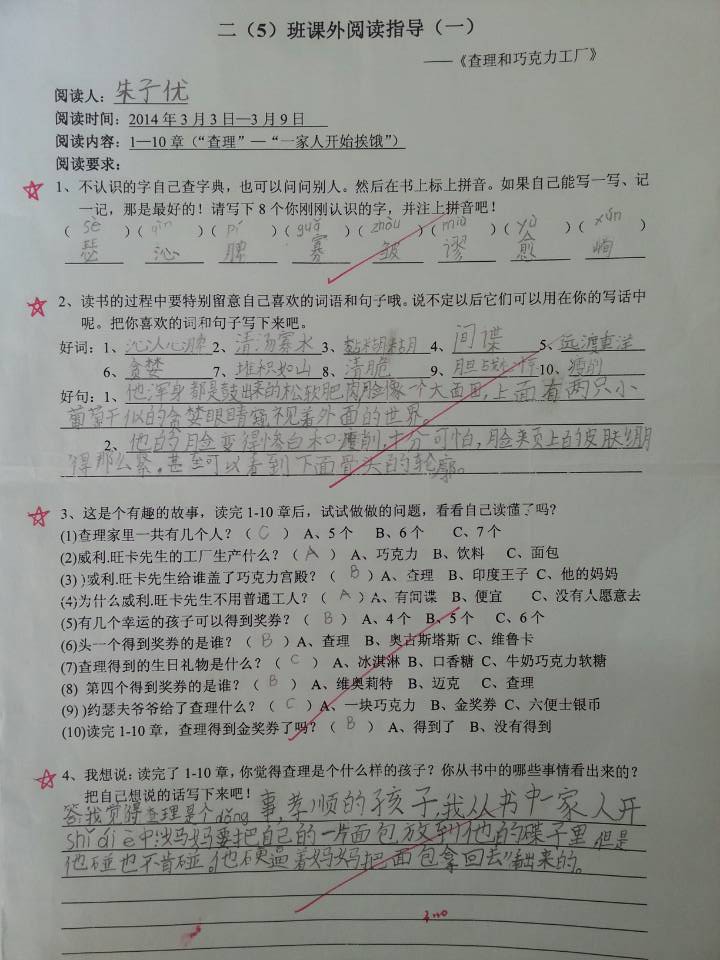 二（5）班课外阅读指导（一）
——《查理和巧克力工厂》
阅读人：朱子优
阅读时间：2014年3月3日—3月9日
阅读内容：1—10章（“查理”—“一家人开始挨饿”）
阅读要求：
1、不认识的字自己查字典，也可以问问别人。然后在书上标上拼音。如果自己能写一写、记
一记，那是最好的！请写下8个你刚刚认识的字，并注上拼音吧！
（ sè ）（ qìn ）（ pí ）（ guǎ ）（ zhòu ）（ miù ）（ yù ）（ xún ）
瑟 沁 脾 寡 皱 谬 愈 峋
2、读书的过程中要特别留意自己喜欢的词语和句子哦。说不定以后它们可以用在你的写话中
呢。把你喜欢的词和句子写下来吧。
好词：1、沁人心脾 2、清汤寡水 3、黏糊糊 4、间谍 5、远渡重洋
6、贪婪 7、堆积如山 8、清脆 9、胆战心惊 10、瘦削
好句：1、他浑身都是鼓出来的松软肥肉脸像一个大面团，上面有两只小
葡萄干似的贪婪眼睛 着外面的世界。
2、他的脸变得惨白和瘦削，十分可怕，脸颊上的皮肤绷
得那么紧，甚至可以看到下面骨头的轮廓。
3、这是个有趣的故事，读完1-10章后，试试做做的问题，看看自己读懂了吗？
(1)查理家里一共有几个人？（ C ） A、5个 B、6个 C、7个
(2)威利.旺卡先生的工厂生产什么？（ A ） A、巧克力 B、饮料 C、面包
(3) )威利.旺卡先生给谁盖了巧克力宫殿？（ B ）A、查理 B、印度王子 C、他的妈妈
(4)为什么威利.旺卡先生不用普通工人？（ A ）A、有间谍 B、便宜 C、没有人愿意去
(5)有几个幸运的孩子可以得到奖券？（ B ） A、4个 B、5个 C、6个
(6)头一个得到奖券的是谁？（ B ）A、查理 B、奥古斯塔斯 C、维鲁卡
(7)查理得到的生日礼物是什么？（ C ） A、冰淇淋 B、口香糖 C、牛奶巧克力软糖
(8) 第四个得到奖券的是谁？（ B ） A、维奥莉特 B、迈克 C、查理
(9) )约瑟夫爷爷给了查理什么？（ C ）A、一块巧克力 B、金奖券 C、六便士银币
(10)读完1-10章，查理得到金奖券了吗？（ B ） A、得到了 B、没有得到
4、我想说：读完了1-10章，你觉得查理是个什么样的孩子？你从书中的哪些事情看出来的？
把自己想说的话写下来吧！
答：我觉得查理是个dǒng事，孝顺的孩子，我从书中一家人开
shǐ di è中：妈妈要把自己的一片面包放到他的碟子里 但是
他碰也不肯碰。他硬逼着妈妈把面包拿回去”看出来的。